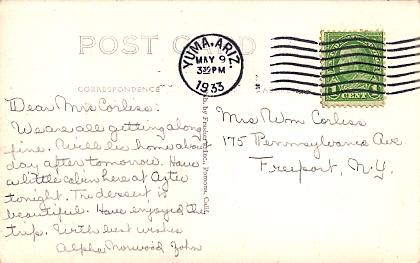 POST CARD
CORRESPONDENCE
YUMA, ARIZ.
MAY 9
3 30 PM
1933
1 CENT 1
Dear Mrs Corliss:
We are all getting along
fine. Will be home about
day after tomorrow. Have
a little cabin here at Aztec
tonight. The desert is
beautiful. Have enjoyed the
trip. With best wishes
Alpha Norwood John
by Frashers Inc., Pomona, Calif.
Mrs Wm Corliss
175 Pennsylvania Ave
Freeport, N.Y.